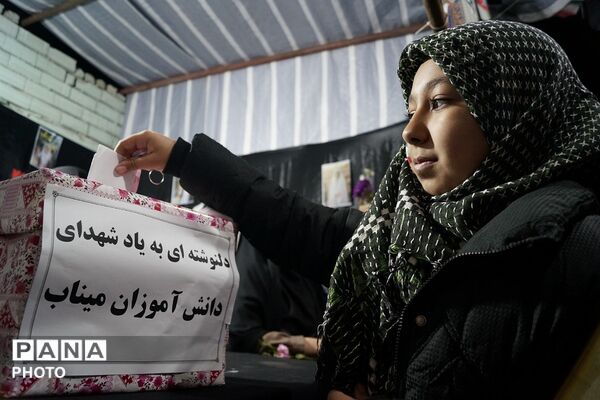 دلنوشته ای به یاد شهدای
دانش آموزان میناب
PANA
PHOTO